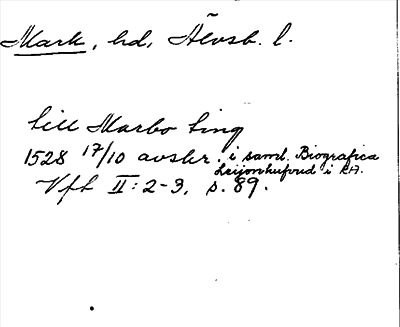 Mark, hd, Älvsb. l.
till Marbo ting
1528 17/10 avskr. i saml. Biografica
Leijonhufvud i RA.
Vfl II: 2-3, s. 89.